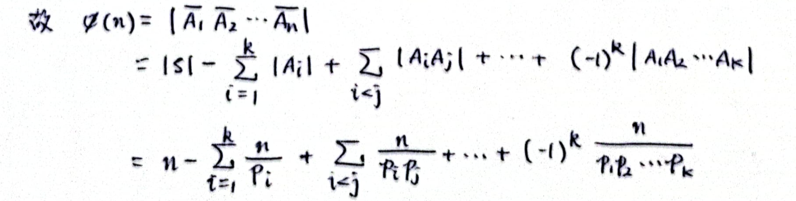 故 φ(n) = |A̅₁ A̅₂ ⋯ A̅ₙ|
= |S| - ∑_{i=1}^{k} |Aᵢ| + ∑_{i<j} |AᵢAⱼ| + ⋯ + (-1)ᵏ |A₁A₂⋯Aₖ|
= n - ∑_{i=1}^{k} n/Pᵢ + ∑_{i<j} n/(PᵢPⱼ) + ⋯ + (-1)ᵏ n/(P₁P₂⋯Pₖ)